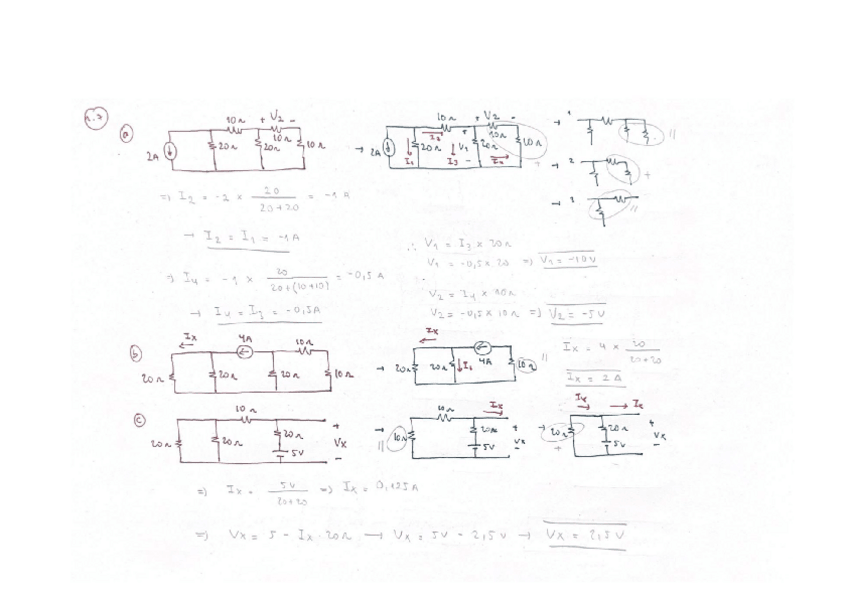 1.7
a
10Ω + V2 -
2A 20Ω 20Ω 10Ω 10Ω
→ 2A I1 20Ω I2 10Ω I3 V1 + - 20Ω + V2 - 10Ω I4 10Ω
→ 1 //
→ 2 +
→ 3 //
⇒ I2 = -2 × 20/(20+20) = -1A
→ I2 = I1 = -1A
∴ V1 = I3 × 20Ω
V1 = -0,5 × 20 ⇒ V1 = -10V
⇒ I4 = -1 × 20/(20+(10+10)) = -0,5A
→ I4 = I3 = -0,5A
V2 = I4 × 10Ω
V2 = -0,5 × 10Ω ⇒ V2 = -5V
b
Ix 4A 10Ω
20Ω 20Ω 20Ω 10Ω
→ Ix 20Ω 20Ω I1 4A 10Ω //
Ix = 4 × 20/(20+20)
Ix = 2A
c
10Ω
20Ω 20Ω 20Ω 5V + Vx -
→ // 10Ω 10Ω Ix 20Ω 5V + Vx -
→ 20Ω + Ix Ix 20Ω 5V + Vx -
⇒ Ix = 5V/(20+20) ⇒ Ix = 0,125A
⇒ Vx = 5 - Ix · 20Ω → Vx = 5V - 2,5V → Vx = 2,5V